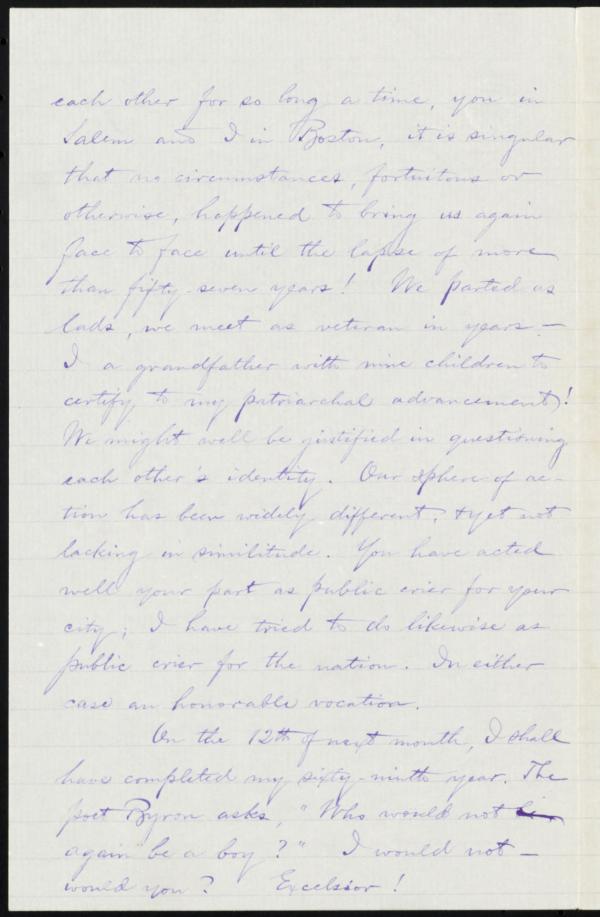 each other for so long a time, you in
Salem and I in Boston, it is singular
that no circumstances, fortuitous or
otherwise, happened to bring us again
face to face until the lapse of more
than fifty-seven years! We parted as
lads, we meet as veteran in years —
I a grandfather with nine children to
certify to my patriarchal advancement!
We might well be justified in questioning
each other's identity. Our sphere of ac-
tion has been widely different, & yet not
lacking in similitude. You have acted
well your part as public crier for your
city; I have tried to do likewise as
public crier for the nation. In either
case an honorable vocation.
On the 12th of next month, I shall
have completed my sixty-ninth year. The
poet Byron asks, "Who would not
again be a boy?" I would not —
would you? Excelsior!